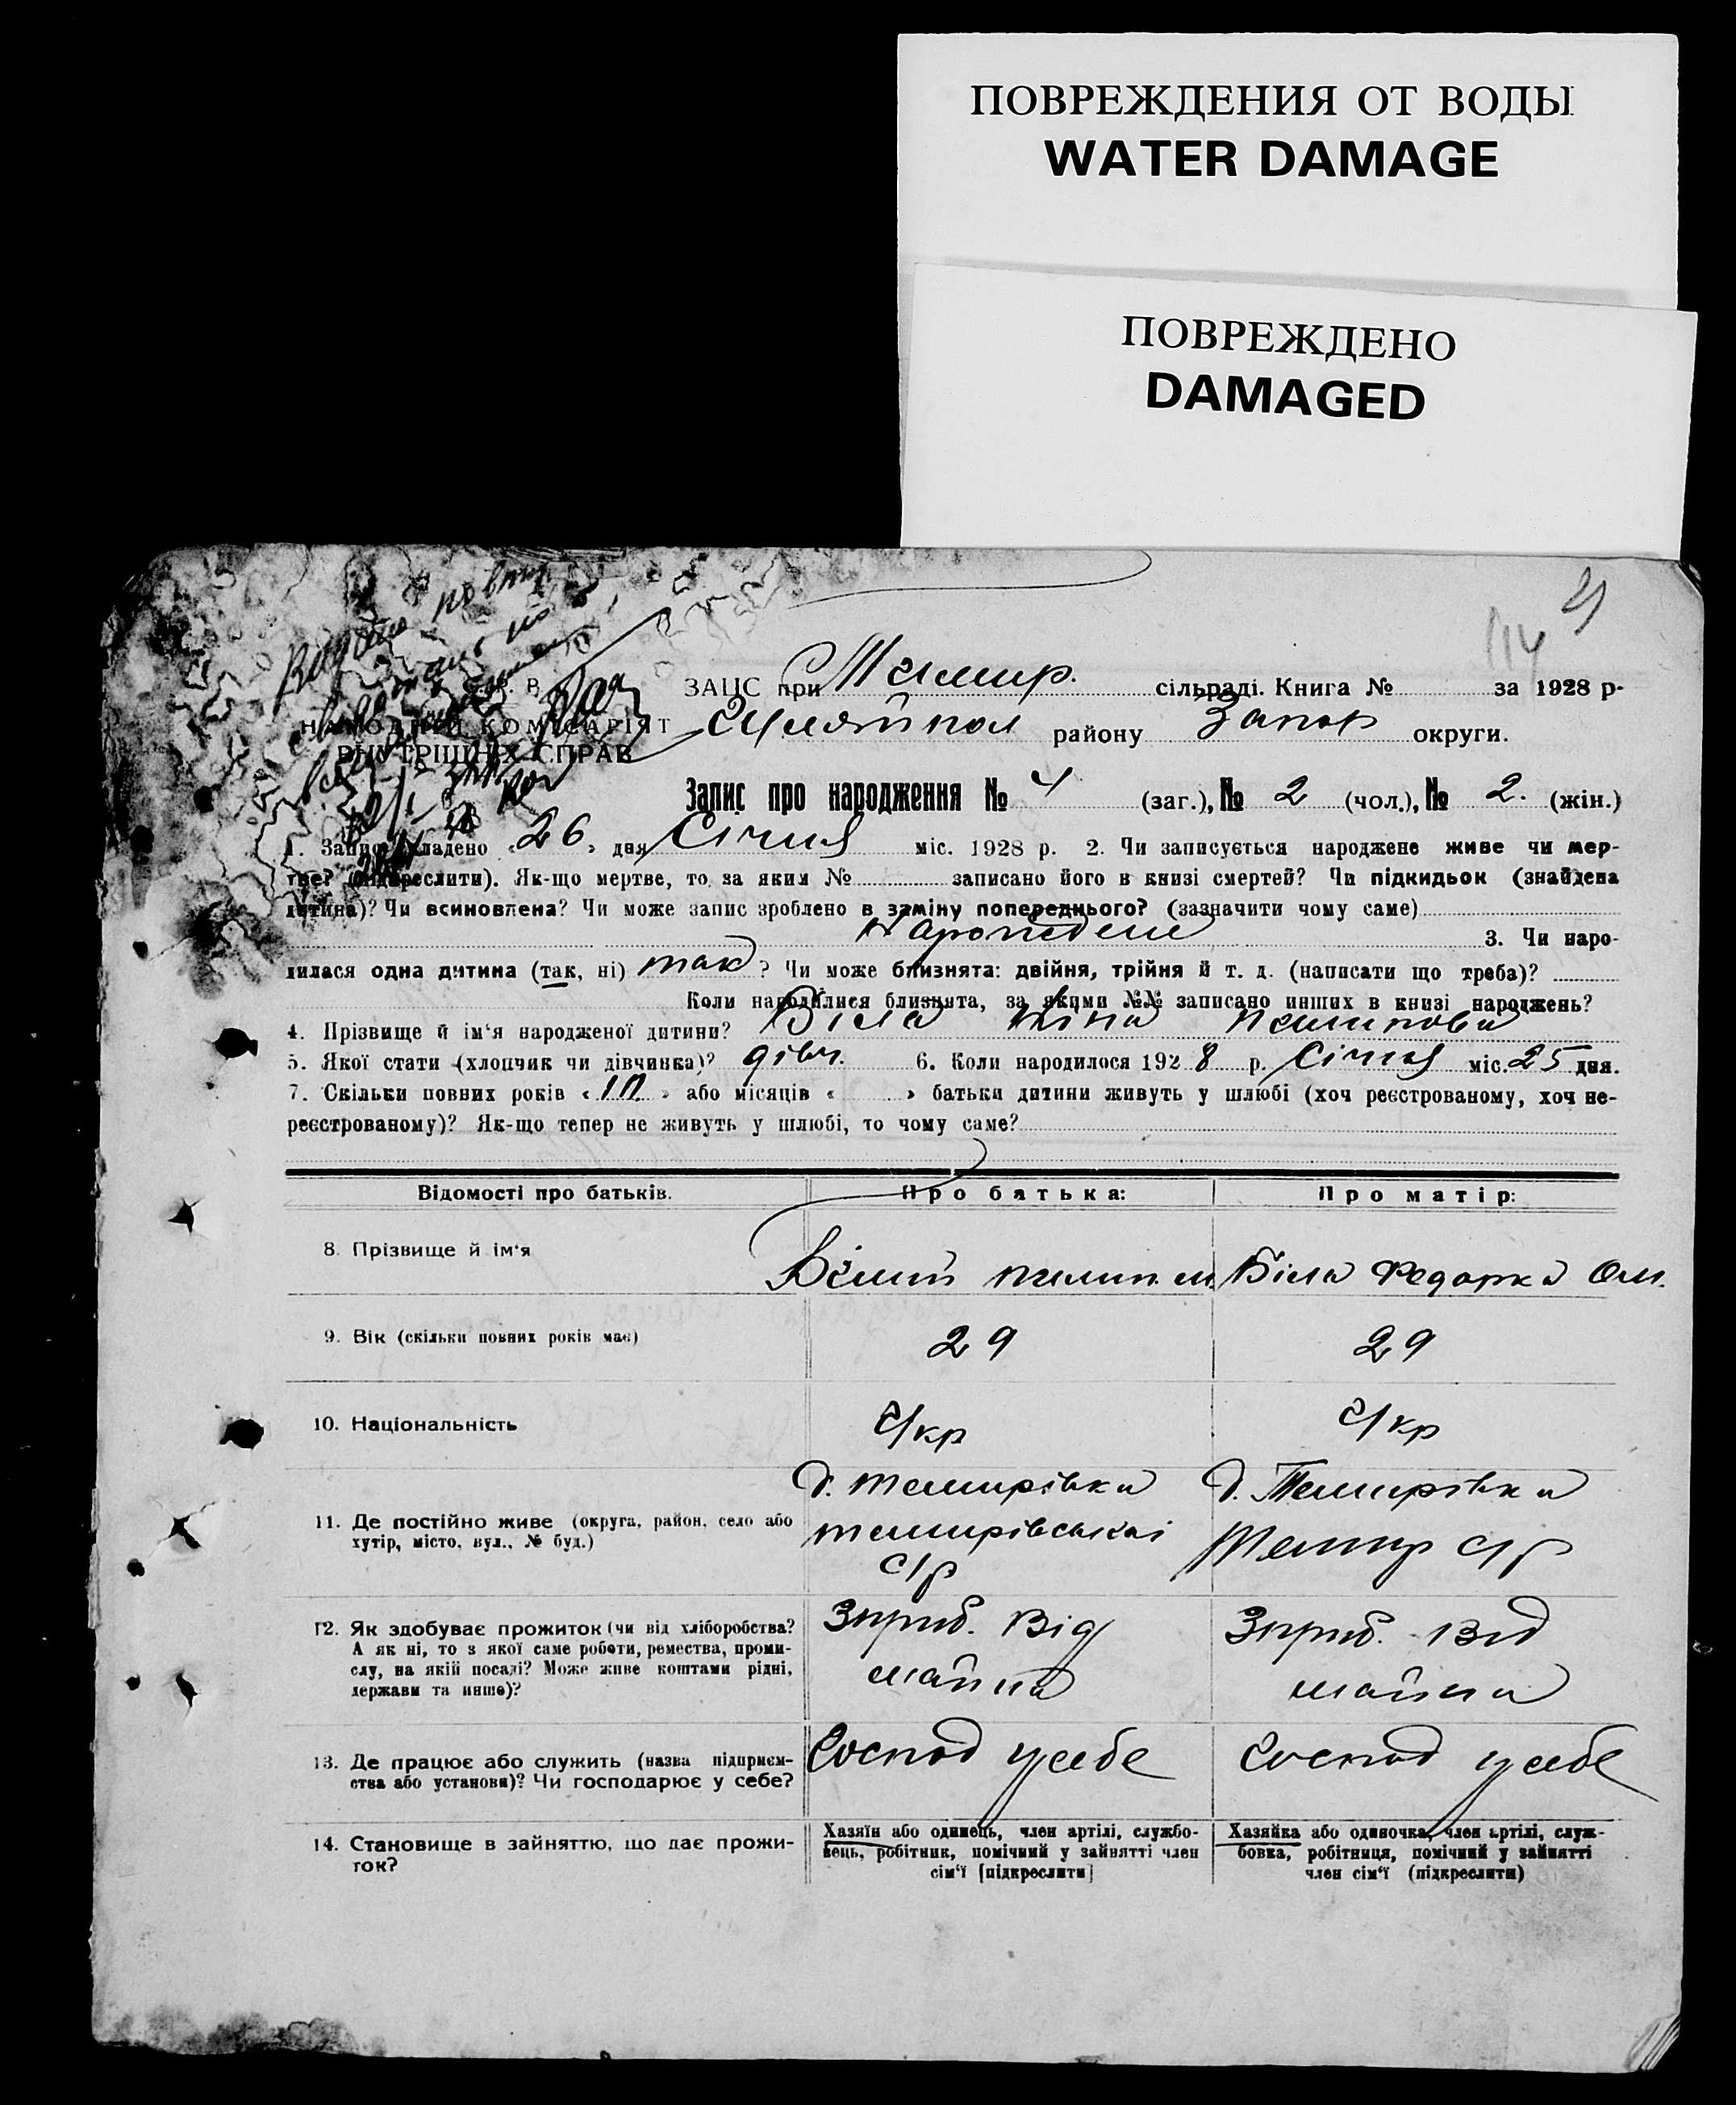 ПОВРЕЖДЕНИЯ ОТ ВОДЫ
WATER DAMAGE
ПОВРЕЖДЕНО
DAMAGED
114
ЗАЦС при Темир. сільраді. Книга № за 1928 р.
НАРОДНІЙ КОМІСАРІЯТ
ВНУТРІШНІХ СПРАВ
Гуляйпол району Запор округи.
Запис про народження № 4 (заг.), № 2 (чол.), № 2. (жін.)
1. Запис складено «26» дня Січня міс. 1928 р. 2. Чи записується народжене живе чи мер-
тве? (підкреслити). Як-що мертве, то за яким № записано його в книзі смертей? Чи підкидьок (знайдена
дитина)? Чи всиновлена? Чи може запис зроблено в заміну попереднього? (зазначити чому саме)
3. Чи наро-
дилася одна дитина (так, ні) так? Чи може близнята: двійня, трійня й т. д. (написати що треба)?
Коли народилися близнята, за якими №№ записано инших в книзі народжень?
4. Прізвище й ім‘я народженої дитини? Біла Ніна Пилипова
5. Якої стати (хлопчик чи дівчинка)? дівч. 6. Коли народилося 1928 р. Січня міс. 25 дня.
7. Скільки повних років « » або місяців « » батьки дитини живуть у шлюбі (хоч реєстрованому, хоч не-
реєстрованому)? Як-що тепер не живуть у шлюбі, то чому саме?
Відомості про батьків. Про батька: Про матір:
8. Прізвище й ім‘я
Білий Пилип м. Біла Федорка Ом.
9. Вік (скільки повних років має) 29 29
10. Національність Укр Укр
11. Де постійно живе (округа, район, село або
хутір, місто, вул., № буд.)
д. Темирівка
темирівськоі
с/р
д. Темирівка
Темир с/р
12. Як здобуває прожиток (чи від хліборобства?
А як ні, то з якої саме роботи, ремества, проми-
слу, на якій посаді? Може живе коштами рідні,
держави та инше)?
Зприб. Від
майна
Зприб. від
майна
13. Де працює або служить (назва підприєм-
ства або установи)? Чи господарює у себе?
Господ у себе
Господ у себе
14. Становище в зайняттю, що дає прожи-
ток?
Хазяїн або одинець, член артілі, службо-
вець, робітник, помічний у зайнятті член
сім‘ї [підкреслити]
Хазяйка або одиночка, член артілі, служ-
бовка, робітниця, помічний у зайнятті
член сім‘ї (підкреслити)